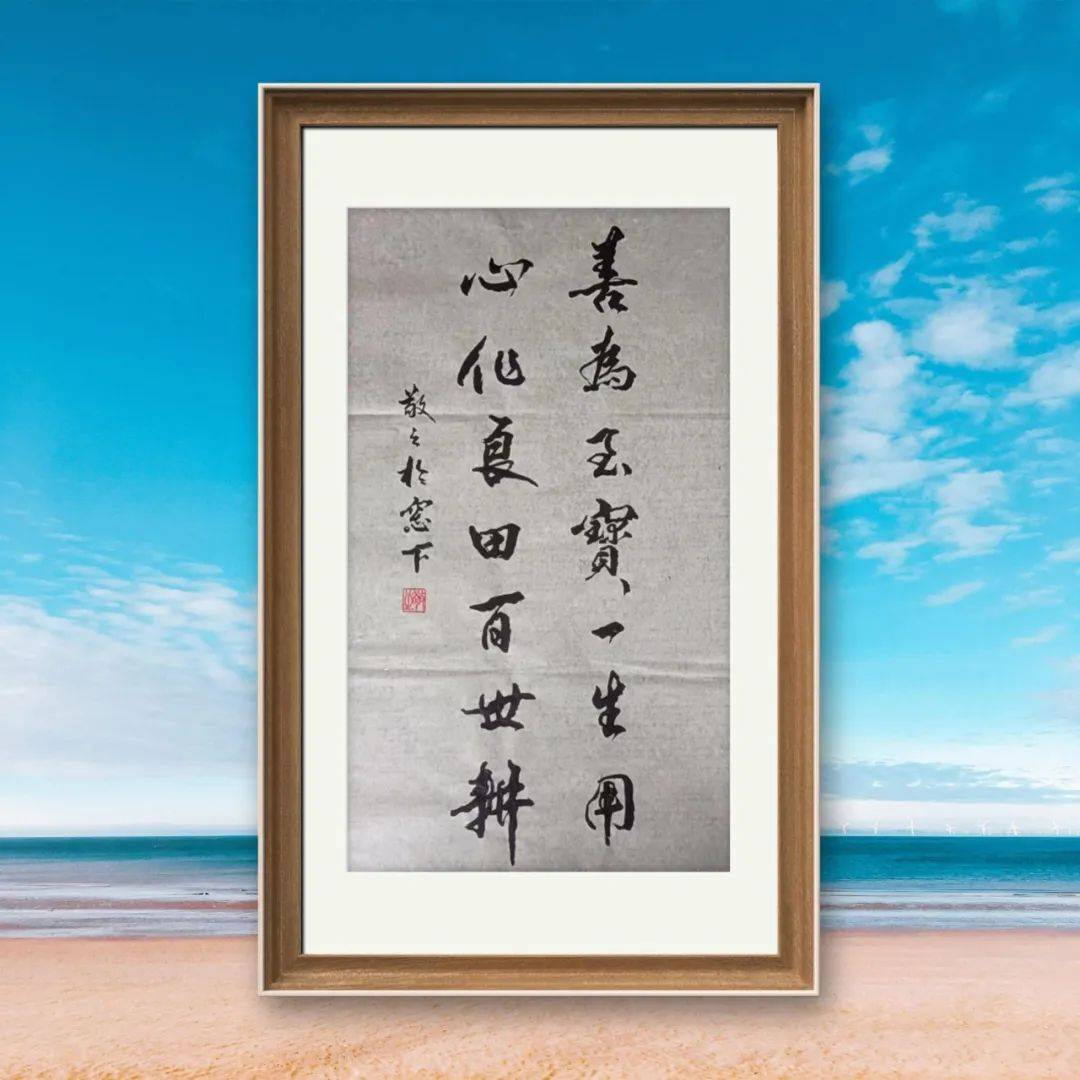 善為至寶一生用
心作良田百世耕
敬之於窓下